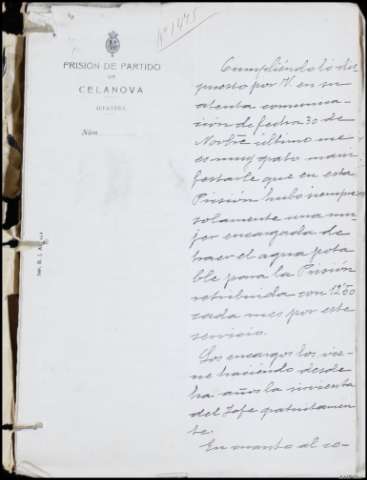 Nº 1475
PRISIÓN DE PARTIDO
DE
CELANOVA
JEFATURA
Núm.
Cumpliendo lo dis-
puesto por V. en su
atenta comunica-
ción de fecha 30 de
Novbre último me
es muy grato mani
festarle que en esta
Prisión hubo siempre
solamente una mu-
jer encargada de
traer el agua pota
ble para la Prisión
retribuida con 12'50
cada mes por este
servicio.
Los encargos los vie-
ne haciendo desde
ha años la sirvienta
del Jefe gratuitamen
te.
En cuanto al co-